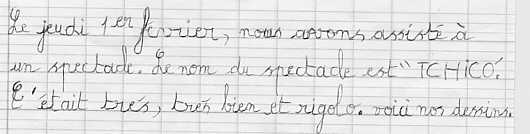 Le jeudi 1er février, nous avons assisté à
un spectacle. Le nom du spectacle est "TCHICO".
C'était très, très bien et rigolo. voici nos dessins.